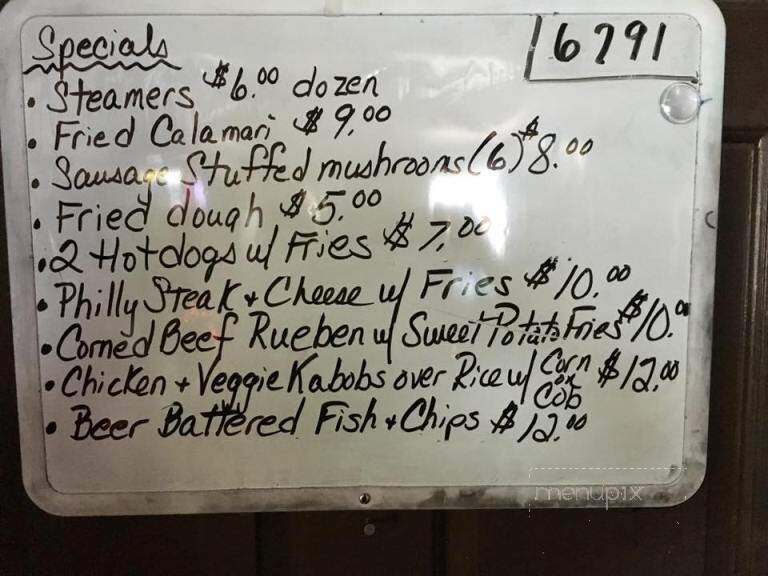 Specials
6791
• Steamers $6.00 dozen
• Fried Calamari $9.00
• Sausage Stuffed mushrooms (6) $8.00
• Fried dough $5.00
• 2 Hotdogs w/ Fries $7.00
• Philly Steak + Cheese w/ Fries $10.00
• Corned Beef Rueben w/ Sweet Potato Fries $10.00
• Chicken + Veggie Kabobs over Rice w/ Corn ox Cob $12.00
• Beer Battered Fish + Chips $12.00
menupix